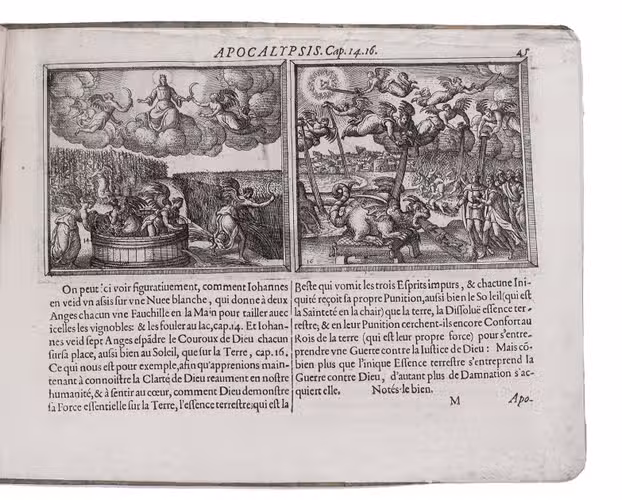 APOCALYPSIS. Cap. 14. 16.
45
On peut ici voir figuratiuement, comment Iohannes
en veid vn assis sur vne Nuee blanche, qui donne à deux
Anges chacun vne Fauchille en la Main pour tailler avec
icelles les vignobles: & les fouler au lac, cap.14. Et Iohan-
nes veid sept Anges espãdre le Couroux de Dieu chacun
sur sa place, aussi bien au Soleil, que sur la Terre, cap. 16.
Ce qui nous est pour exemple, afin qu'apprenions main-
tenant à connoistre la Clarté de Dieu reaument en nostre
humanité, & à sentir au cœur, comment Dieu demonstre
sa Force essentielle sur la Terre, l'essence terrestre: qui est la
Beste qui vomit les trois Esprits impurs, & chacune Ini-
quité reçoit sa propre Punition, aussi bien le Soleil (qui est
la Sainteté en la chair) que la terre, la Dissoluë essence ter-
restre; & en leur Punition cerchent-ils encore Confort au
Rois de la terre (qui est leur propre force) pour s'entre-
prendre vne Guerre contre la Iustice de Dieu: Mais cõ-
bien plus que l'inique Essence terrestre s'entreprend la
Guerre contre Dieu, d'autant plus de Damnation s'ac-
quiert elle. Notés-le bien.
M
Apo-